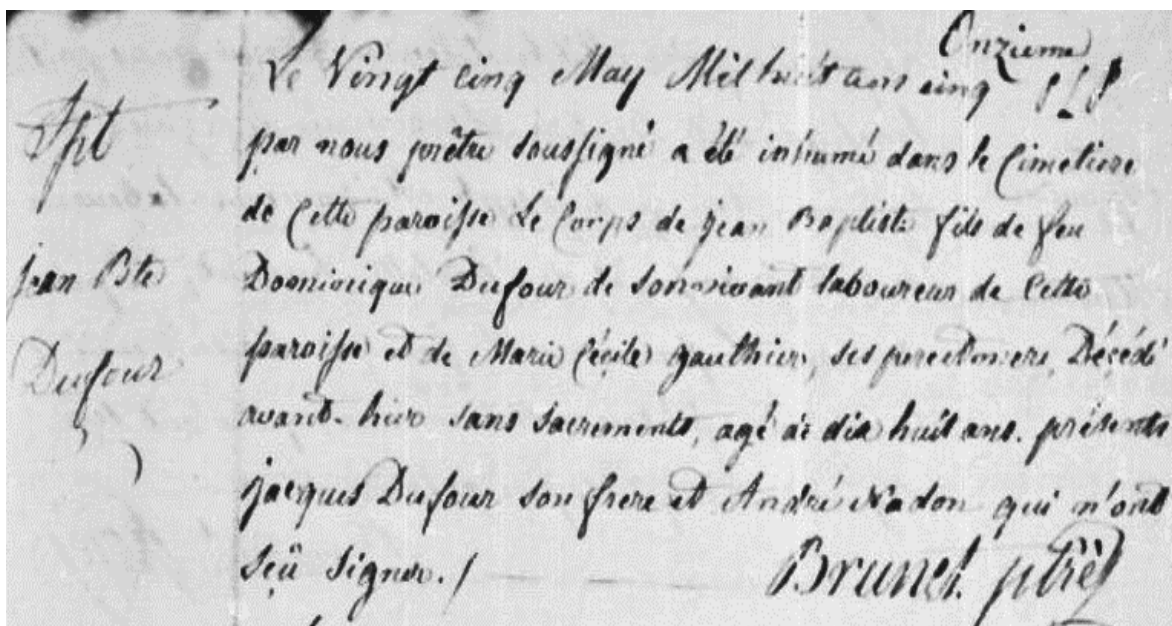 Onzieme
Le Vingt cinq May Mil huit cens cinq
Spt
par nous prêtre soussigné a été inhumé dans le Cimetiere
de Cette paroisse Le Corps de jean Baptiste fils de feu
jean Bte
Dominique Dufour de sonvivant laboureur de Cette
Dufour
paroisse et de Marie Cécile gauthier, ses pere et mere, Décédé
avant-hier sans sacrements, agé de dix huit ans. présents
jacques Dufour son frere et André Nadon qui n'ont
sçû signer. /
Brunet ptre